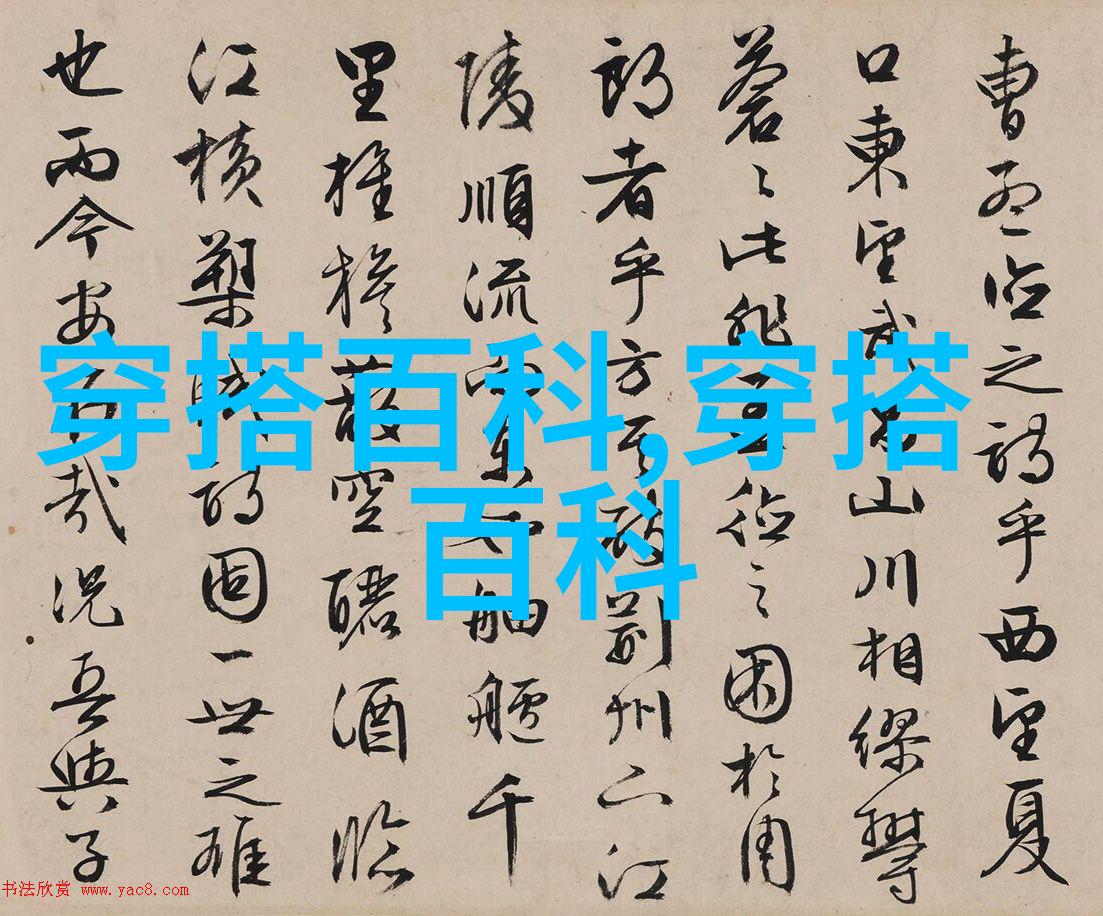 曹孟德之詩乎西望夏
口東望武昌山川相繆鬱
蒼〻此非孟德之困於周
郎者乎方其破荊州下江
陵順流而東也舳艫千
里旌旗蔽空釃酒臨
江橫槊賦詩固一世之雄
也而今安在哉況吾與子
穿搭百科,穿搭
百科
书法欣赏 www.yac8.com